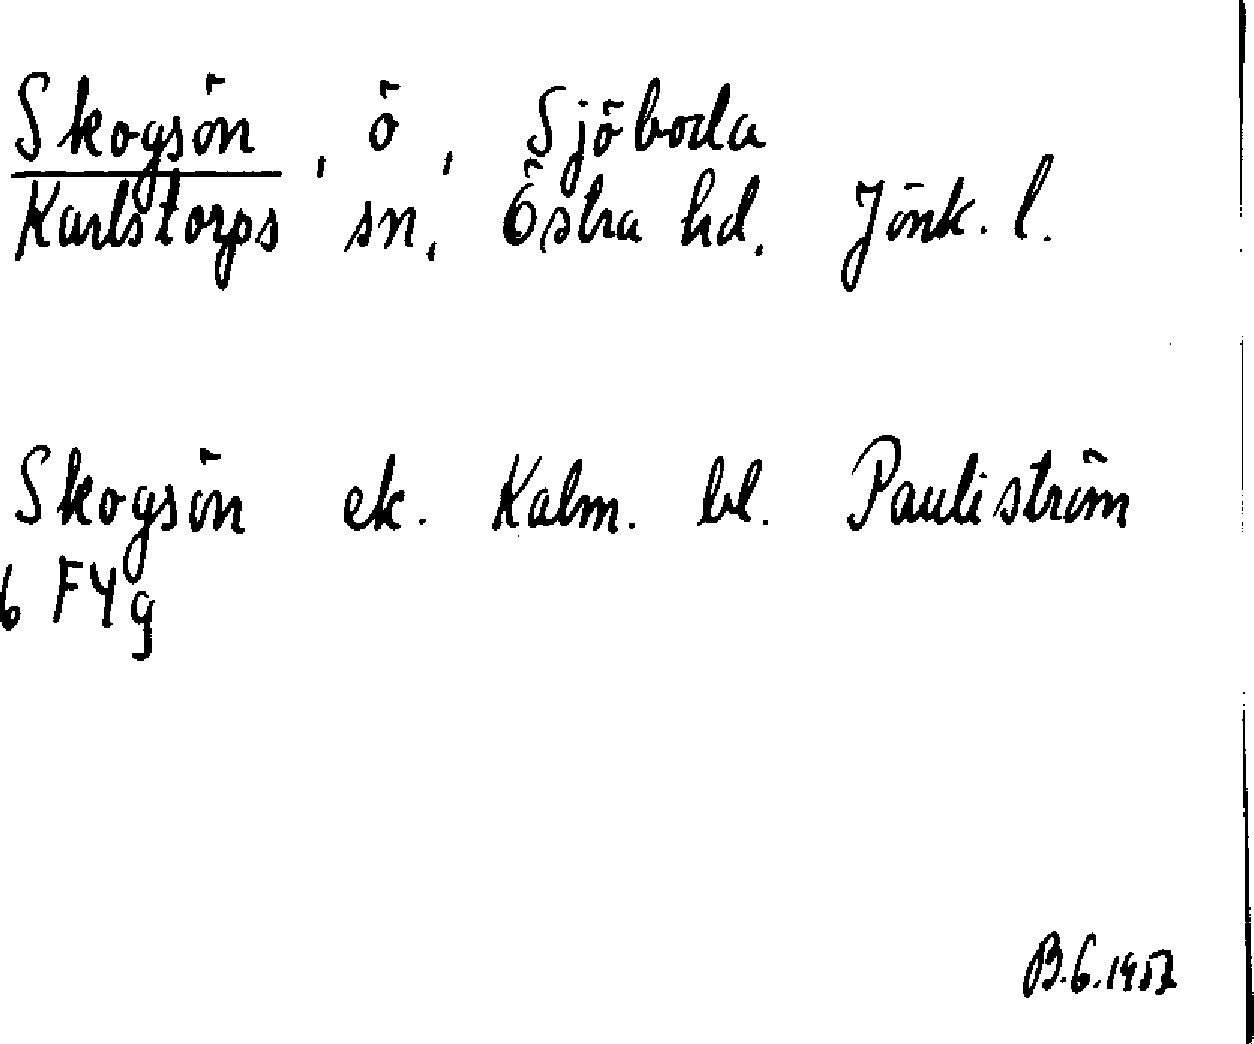 Skogsön, ö, Sjöboda
Karlstorps sn, Östra hd. Jönk. l.
Skogsön ek. Kalm. bl. Pauliström
6 F4g
B.G. 1957